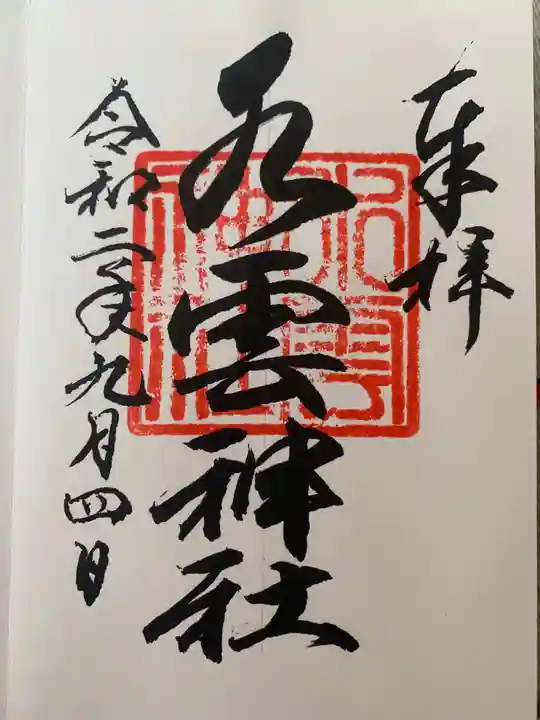 奉拝
雲神社
令和二年九月四日